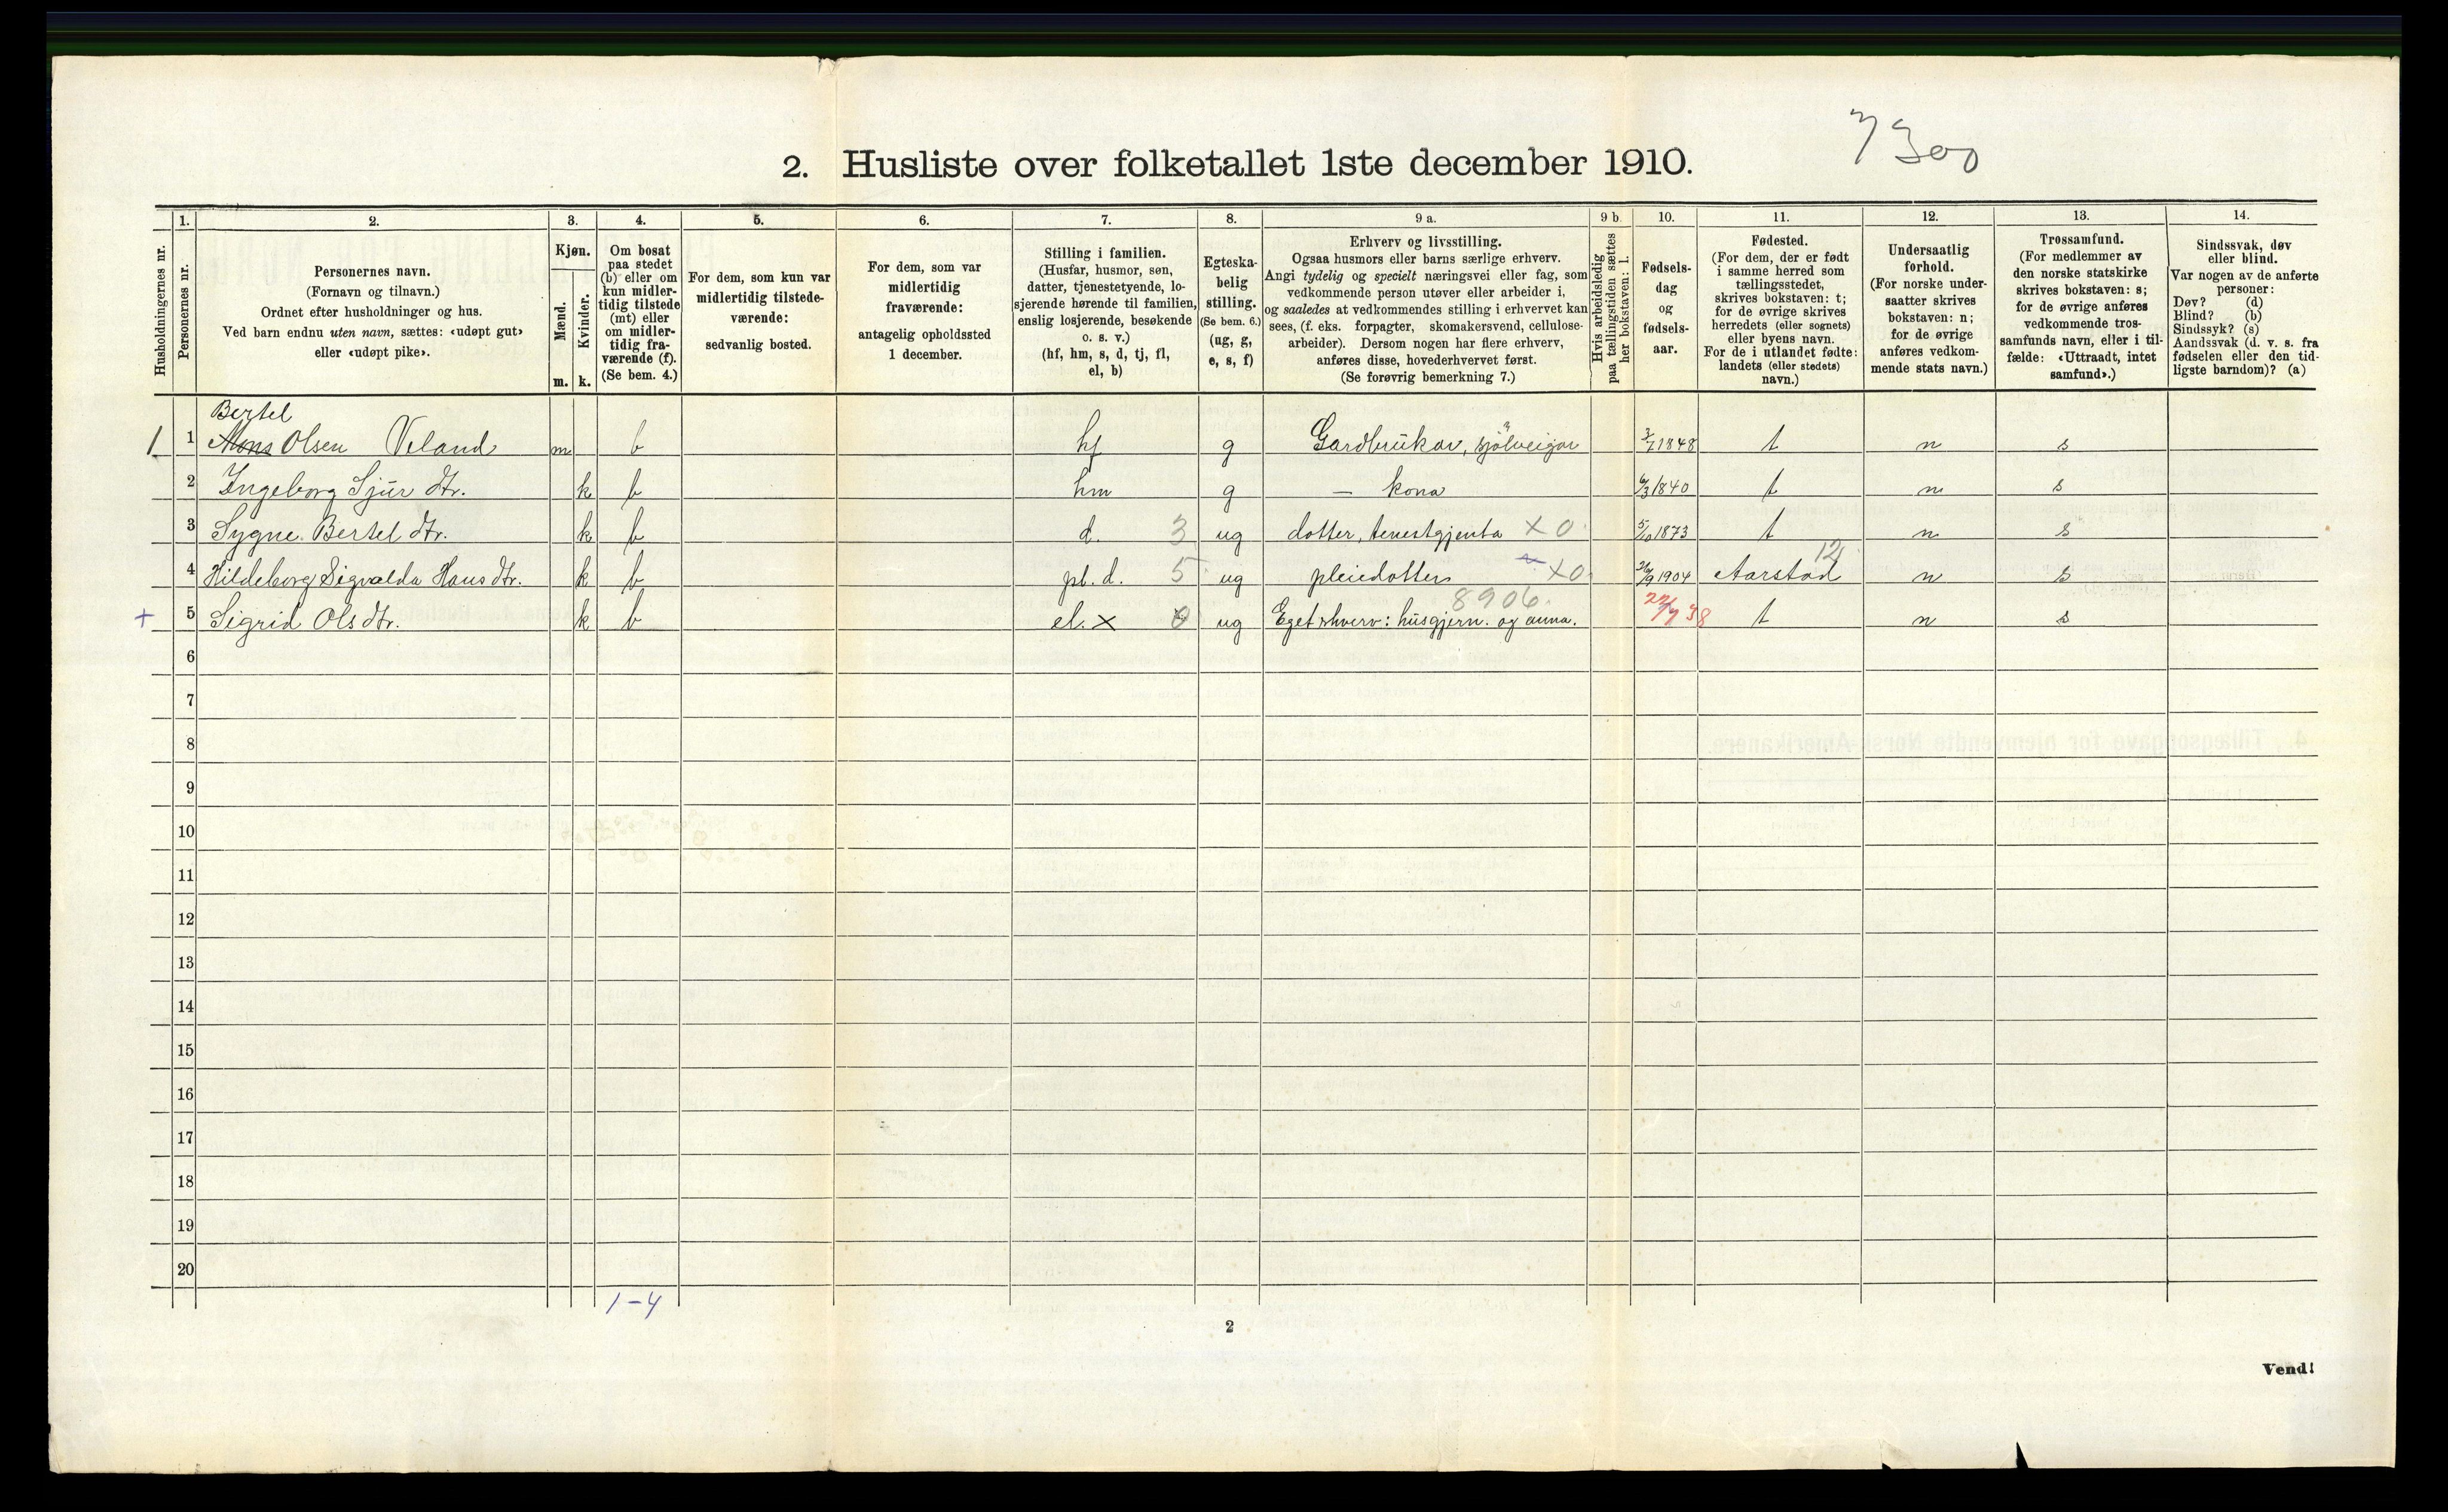 7 300
2. Husliste over folketallet 1ste december 1910.
1. 2. 3. 4. 5. 6. 7. 8. 9 a. 9 b. 10. 11. 12. 13. 14.
Husholdningernes nr.
Personernes nr.
Personernes navn.
(Fornavn og tilnavn.)
Ordnet efter husholdninger og hus.
Ved barn endnu uten navn, sættes: «udøpt gut»
eller «udøpt pike».
Kjøn.
Mænd.
Kvinder.
m. k.
Om bosat
paa stedet
(b) eller om
kun midler-
tidig tilstede
(mt) eller
om midler-
tidig fra-
værende (f).
(Se bem. 4.)
For dem, som kun var
midlertidig tilstede-
værende:
sedvanlig bosted.
For dem, som var
midlertidig
fraværende:
antagelig opholdssted
1 december.
Stilling i familien.
(Husfar, husmor, søn,
datter, tjenestetyende, lo-
sjerende hørende til familien,
enslig losjerende, besøkende
o. s. v.)
(hf, hm, s, d, tj, fl,
el, b)
Egteska-
belig
stilling.
(Se bem. 6.)
(ug, g,
e, s, f)
Erhverv og livsstilling.
Ogsaa husmors eller barns særlige erhverv.
Angi tydelig og specielt næringsvei eller fag, som
vedkommende person utøver eller arbeider i,
og saaledes at vedkommendes stilling i erhvervet kan
sees, (f. eks. forpagter, skomakersvend, cellulose-
arbeider). Dersom nogen har flere erhverv,
anføres disse, hovederhvervet først.
(Se forøvrig bemerkning 7.)
Hvis arbeidsledig
paa tællingstiden sættes
her bokstaven: l.
Fødsels-
dag
og
fødsels-
aar.
Fødested.
(For dem, der er født
i samme herred som
tællingsstedet,
skrives bokstaven: t;
for de øvrige skrives
herredets (eller sognets)
eller byens navn.
For de i utlandet fødte:
landets (eller stedets)
navn.)
Undersaatlig
forhold.
(For norske under-
saatter skrives
bokstaven: n;
for de øvrige
anføres vedkom-
mende stats navn.)
Trossamfund.
(For medlemmer av
den norske statskirke
skrives bokstaven: s;
for de øvrige anføres
vedkommende tros-
samfunds navn, eller i til-
fælde: «Uttraadt, intet
samfund».)
Sindssvak, døv
eller blind.
Var nogen av de anførte
personer:
Døv? (d)
Blind? (b)
Sindssyk? (s)
Aandssvak (d. v. s. fra
fødselen eller den tid-
ligste barndom)? (a)
Bertel
1 1 Mons Olsen Veland m b hf g Gardbrukar, sjölveigar 3/7 1848 t n s
2 Ingeborg Sjur dtr. k b hm g – kona 6/3 1840 t n s
3 Sygne Bertel dtr. k b d. 3 ug dotter, tenestgjenta X 0 5/10 1873 t n s
12
4 Hildeborg Sigvalda Hans dtr. k b pl. d. 5 ug pleiedotter X 0 26/9 1904 Aarstad n s
8906.
+ 5 Sigrid Ols dtr. k b el. x 0 ug Eget erhverv: husgjern. og anna. 22/7 38 t n s
6
7
8
9
10
11
12
13
14
15
16
17
18
19
20
1–4
2
Vend!